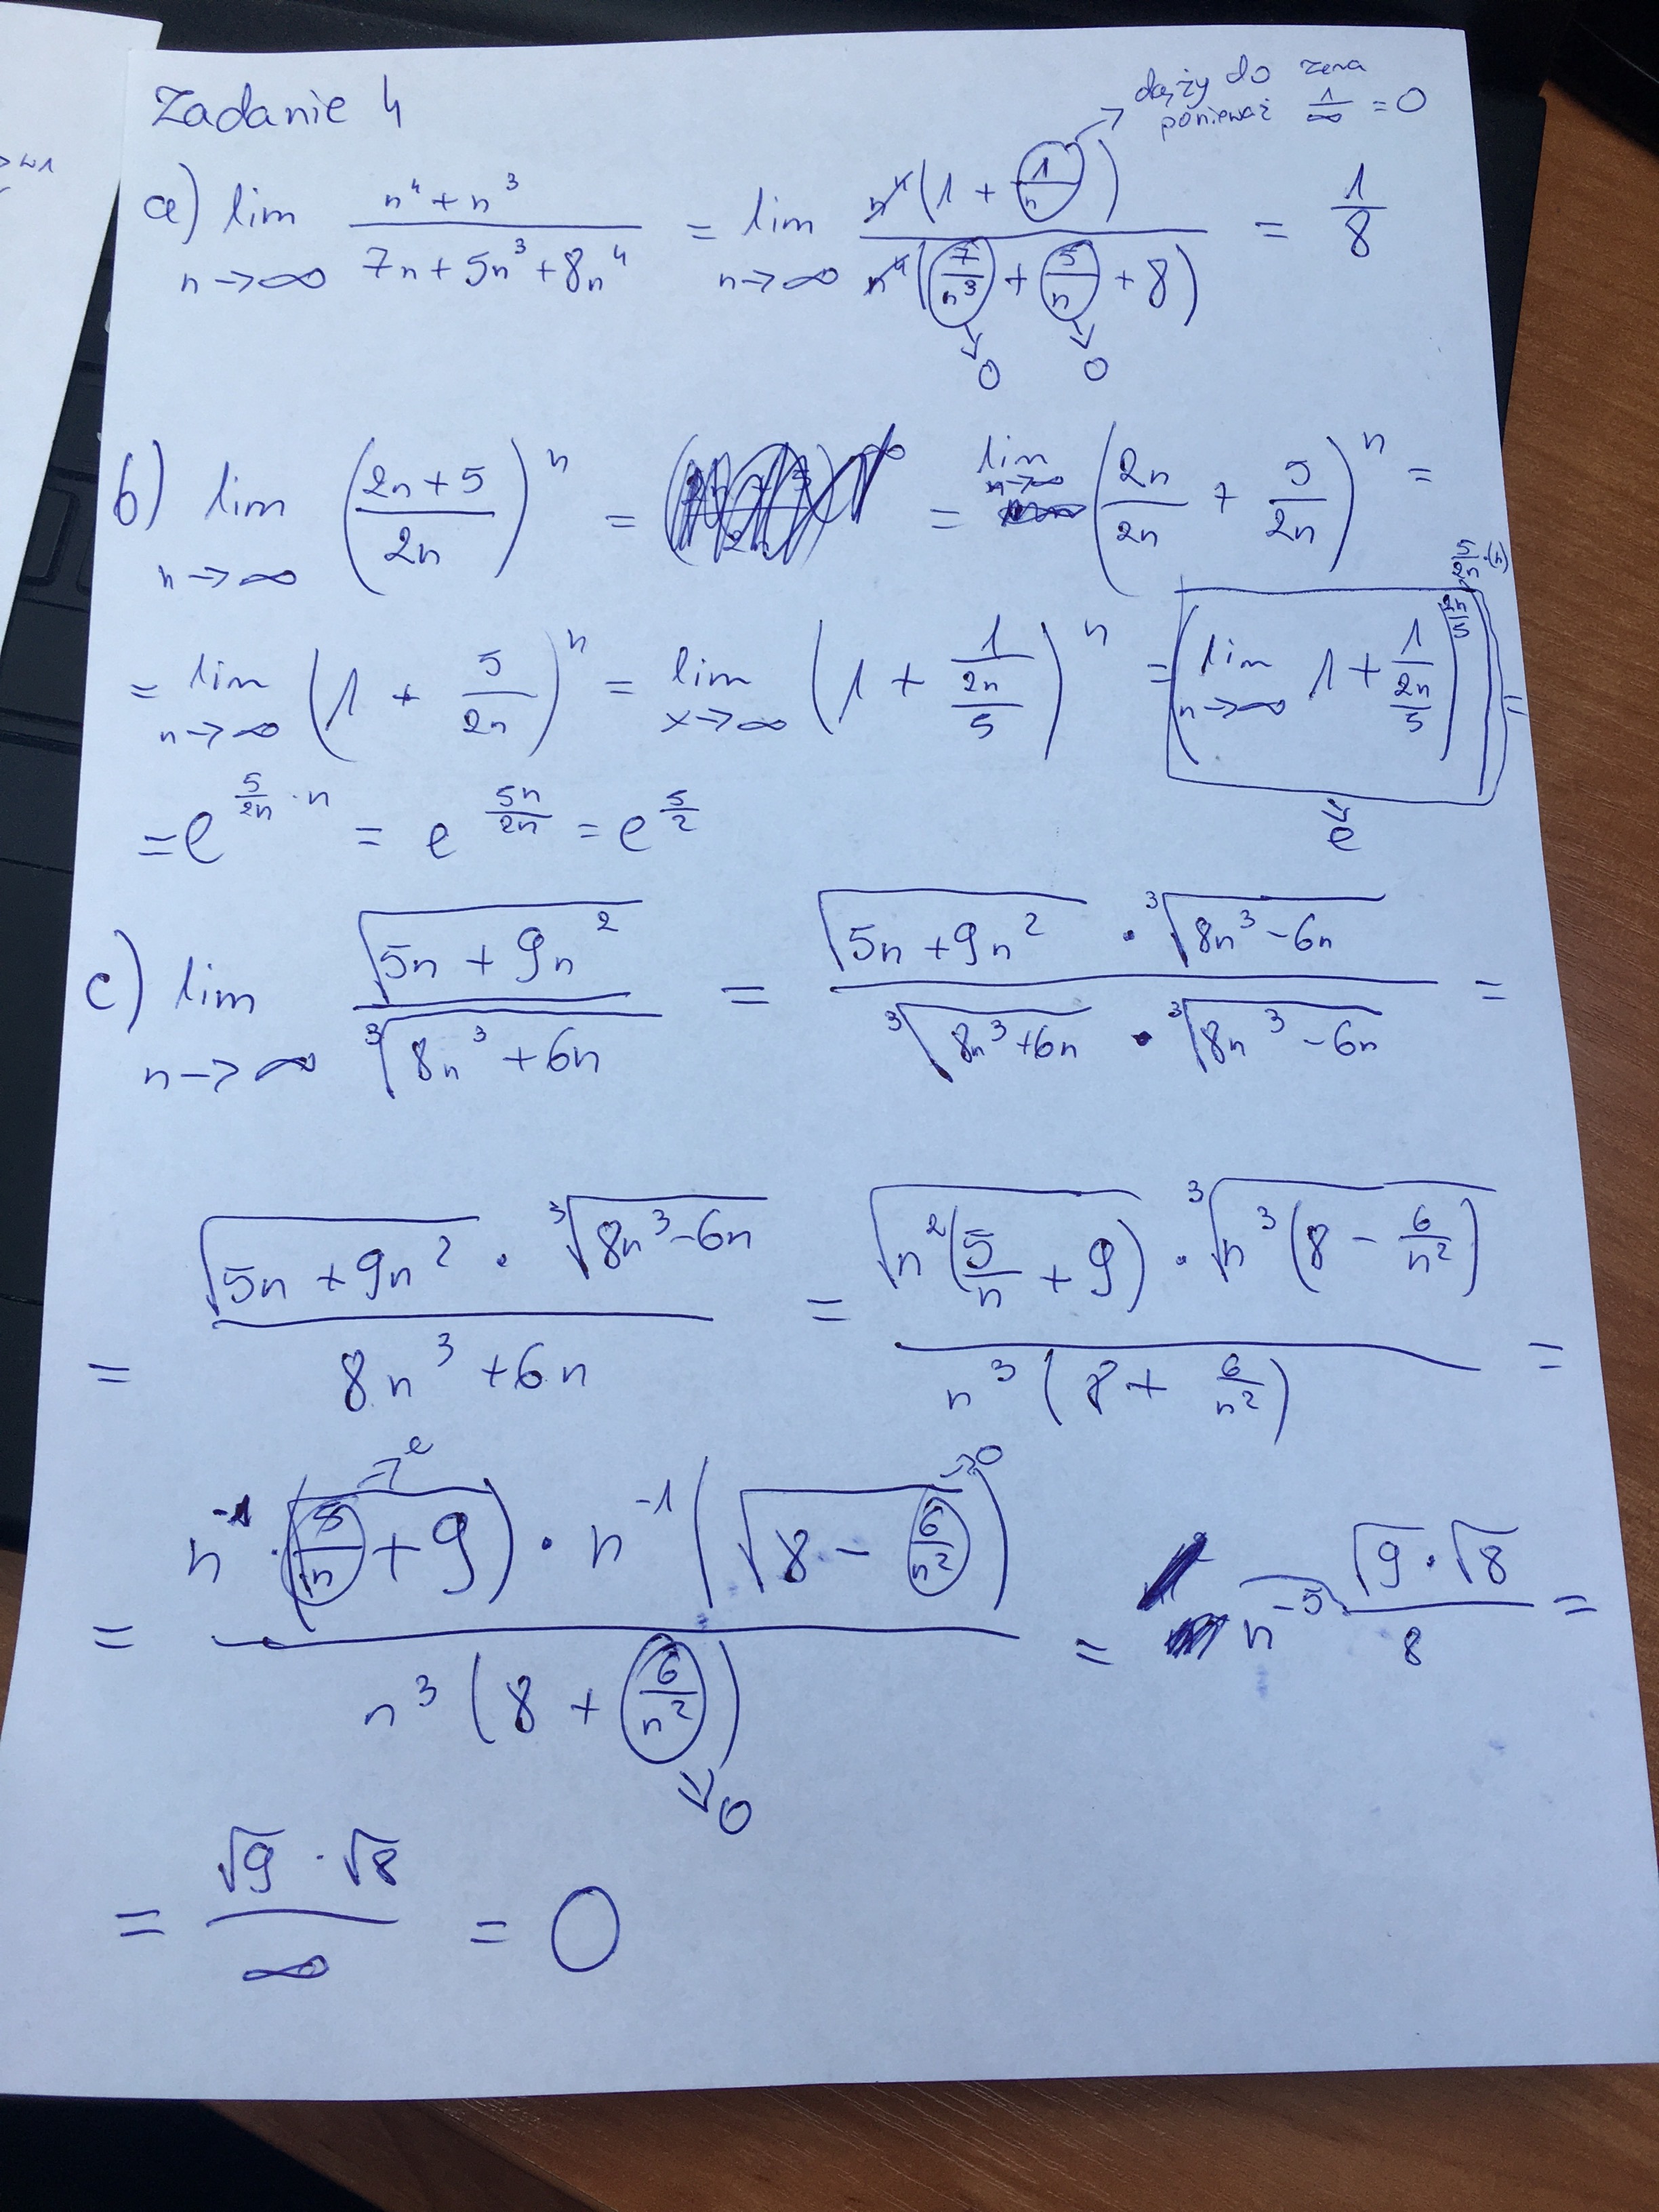 Zadanie 4
dąży do zera
ponieważ 1/∞ = 0
a) lim n→∞ (n⁴ + n³)/(7n + 5n³ + 8n⁴) = lim n→∞ n⁴(1 + 1/n)/n⁴(7/n³ + 5/n + 8) = 1/8
→ 0 → 0
b) lim n→∞ ((2n + 5)/2n)ⁿ = = lim n→∞ (2n/2n + 5/2n)ⁿ =
= lim n→∞ (1 + 5/2n)ⁿ = lim x→∞ (1 + 1/(2n/5))ⁿ = ((lim n→∞ 1 + 1/(2n/5))^(2n/5))^(5/2n · (n)) =
→ e
= e^(5/2n · n) = e^(5n/2n) = e^(5/2)
c) lim n→∞ √(5n + 9n²)/∛(8n³ + 6n) = √(5n + 9n²) · ∛(8n³ - 6n)/∛(8n³ + 6n) · ∛(8n³ - 6n) =
= √(5n + 9n²) · ∛(8n³ - 6n)/(8n³ + 6n) = √(n²(5/n + 9)) · ∛(n³(8 - 6/n²))/n³(8 + 6/n²) =
= n⁻¹ · (√(5/n + 9)) · n⁻¹(√(8 - 6/n²))/n³(8 + 6/n²) = n⁻⁵ √9 · √8/8 =
→ 0
= √9 · √8/∞ = 0